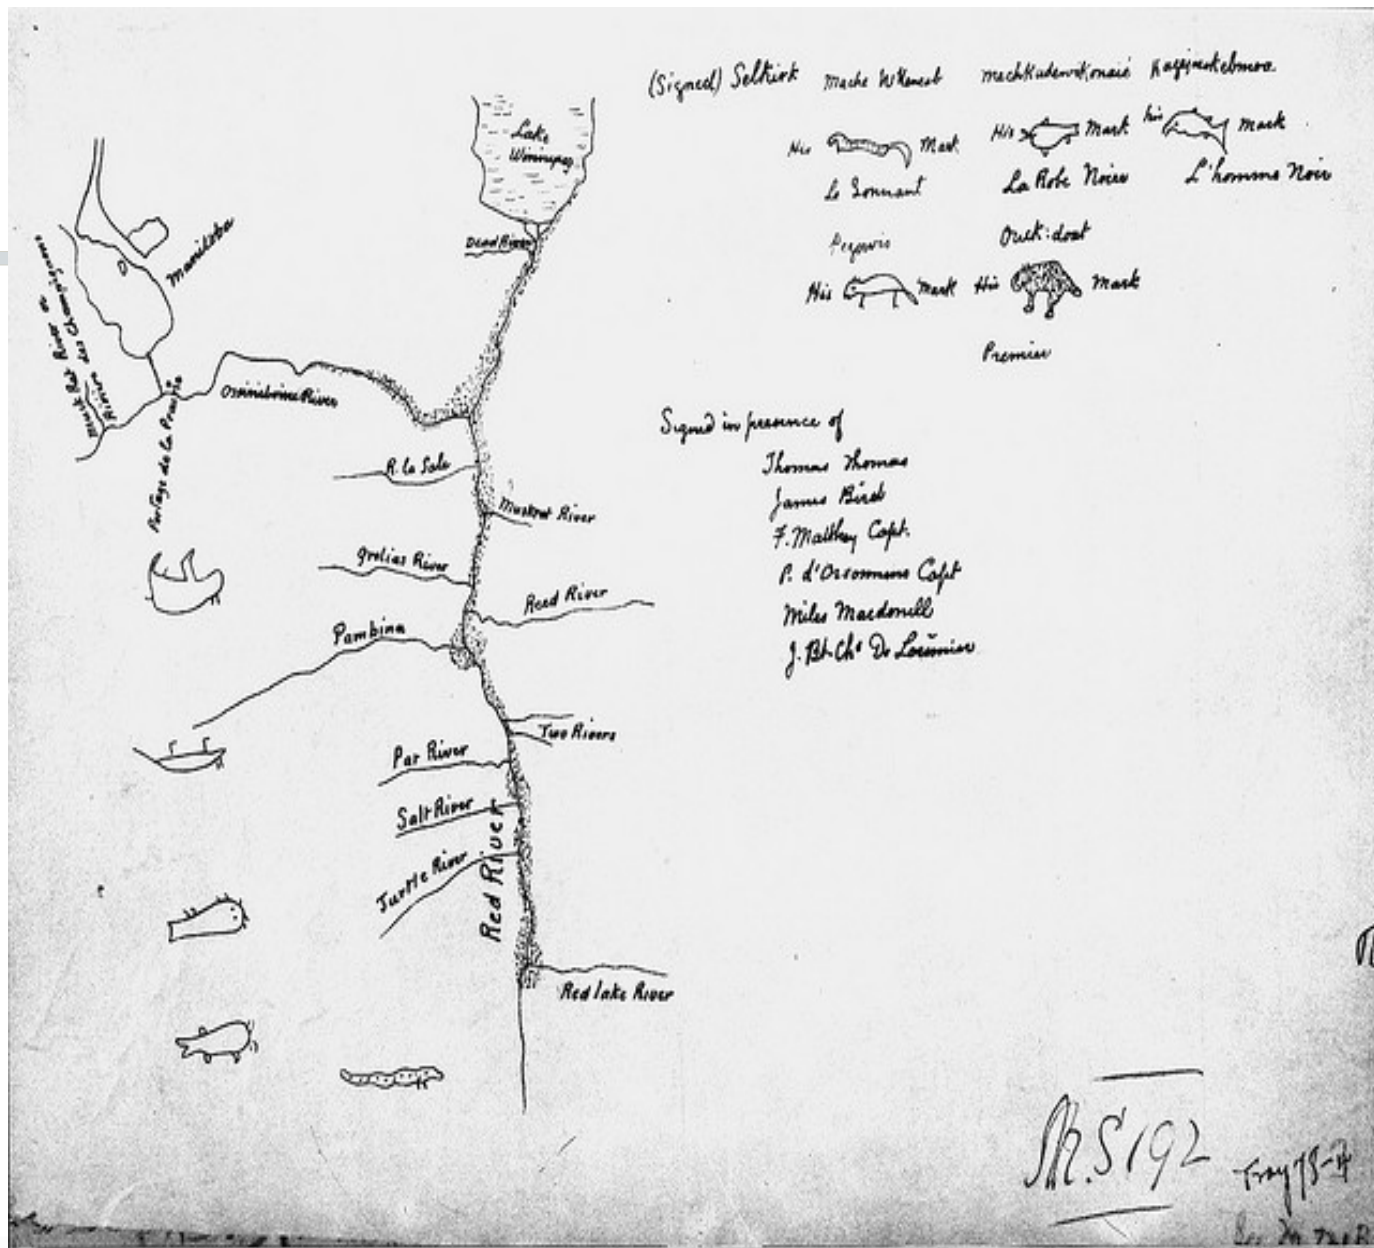 (Signed) Selkirk
His Mark
His Mark
his Mark
Le Sonnant
La Robe Noire
L'homme Noir
Pegowis
His Mark
His Mark
Premier
Signed in presence of
Thomas Thomas
James Bird
F. Matthey Capt.
P. d'Orsonnens Capt
Miles Macdonell
J. Bt. Chs De Lorimier
Lake
Winnipeg
Dead River
Manitoba
Musk Rat River or
Rivière des Champignons
Portage de la Prairie
Ossiniboine River
R. la Sale
Muskrat River
Reed River
Pambina
Two Rivers
Par River
Salt River
Turtle River
Red River
Red lake River